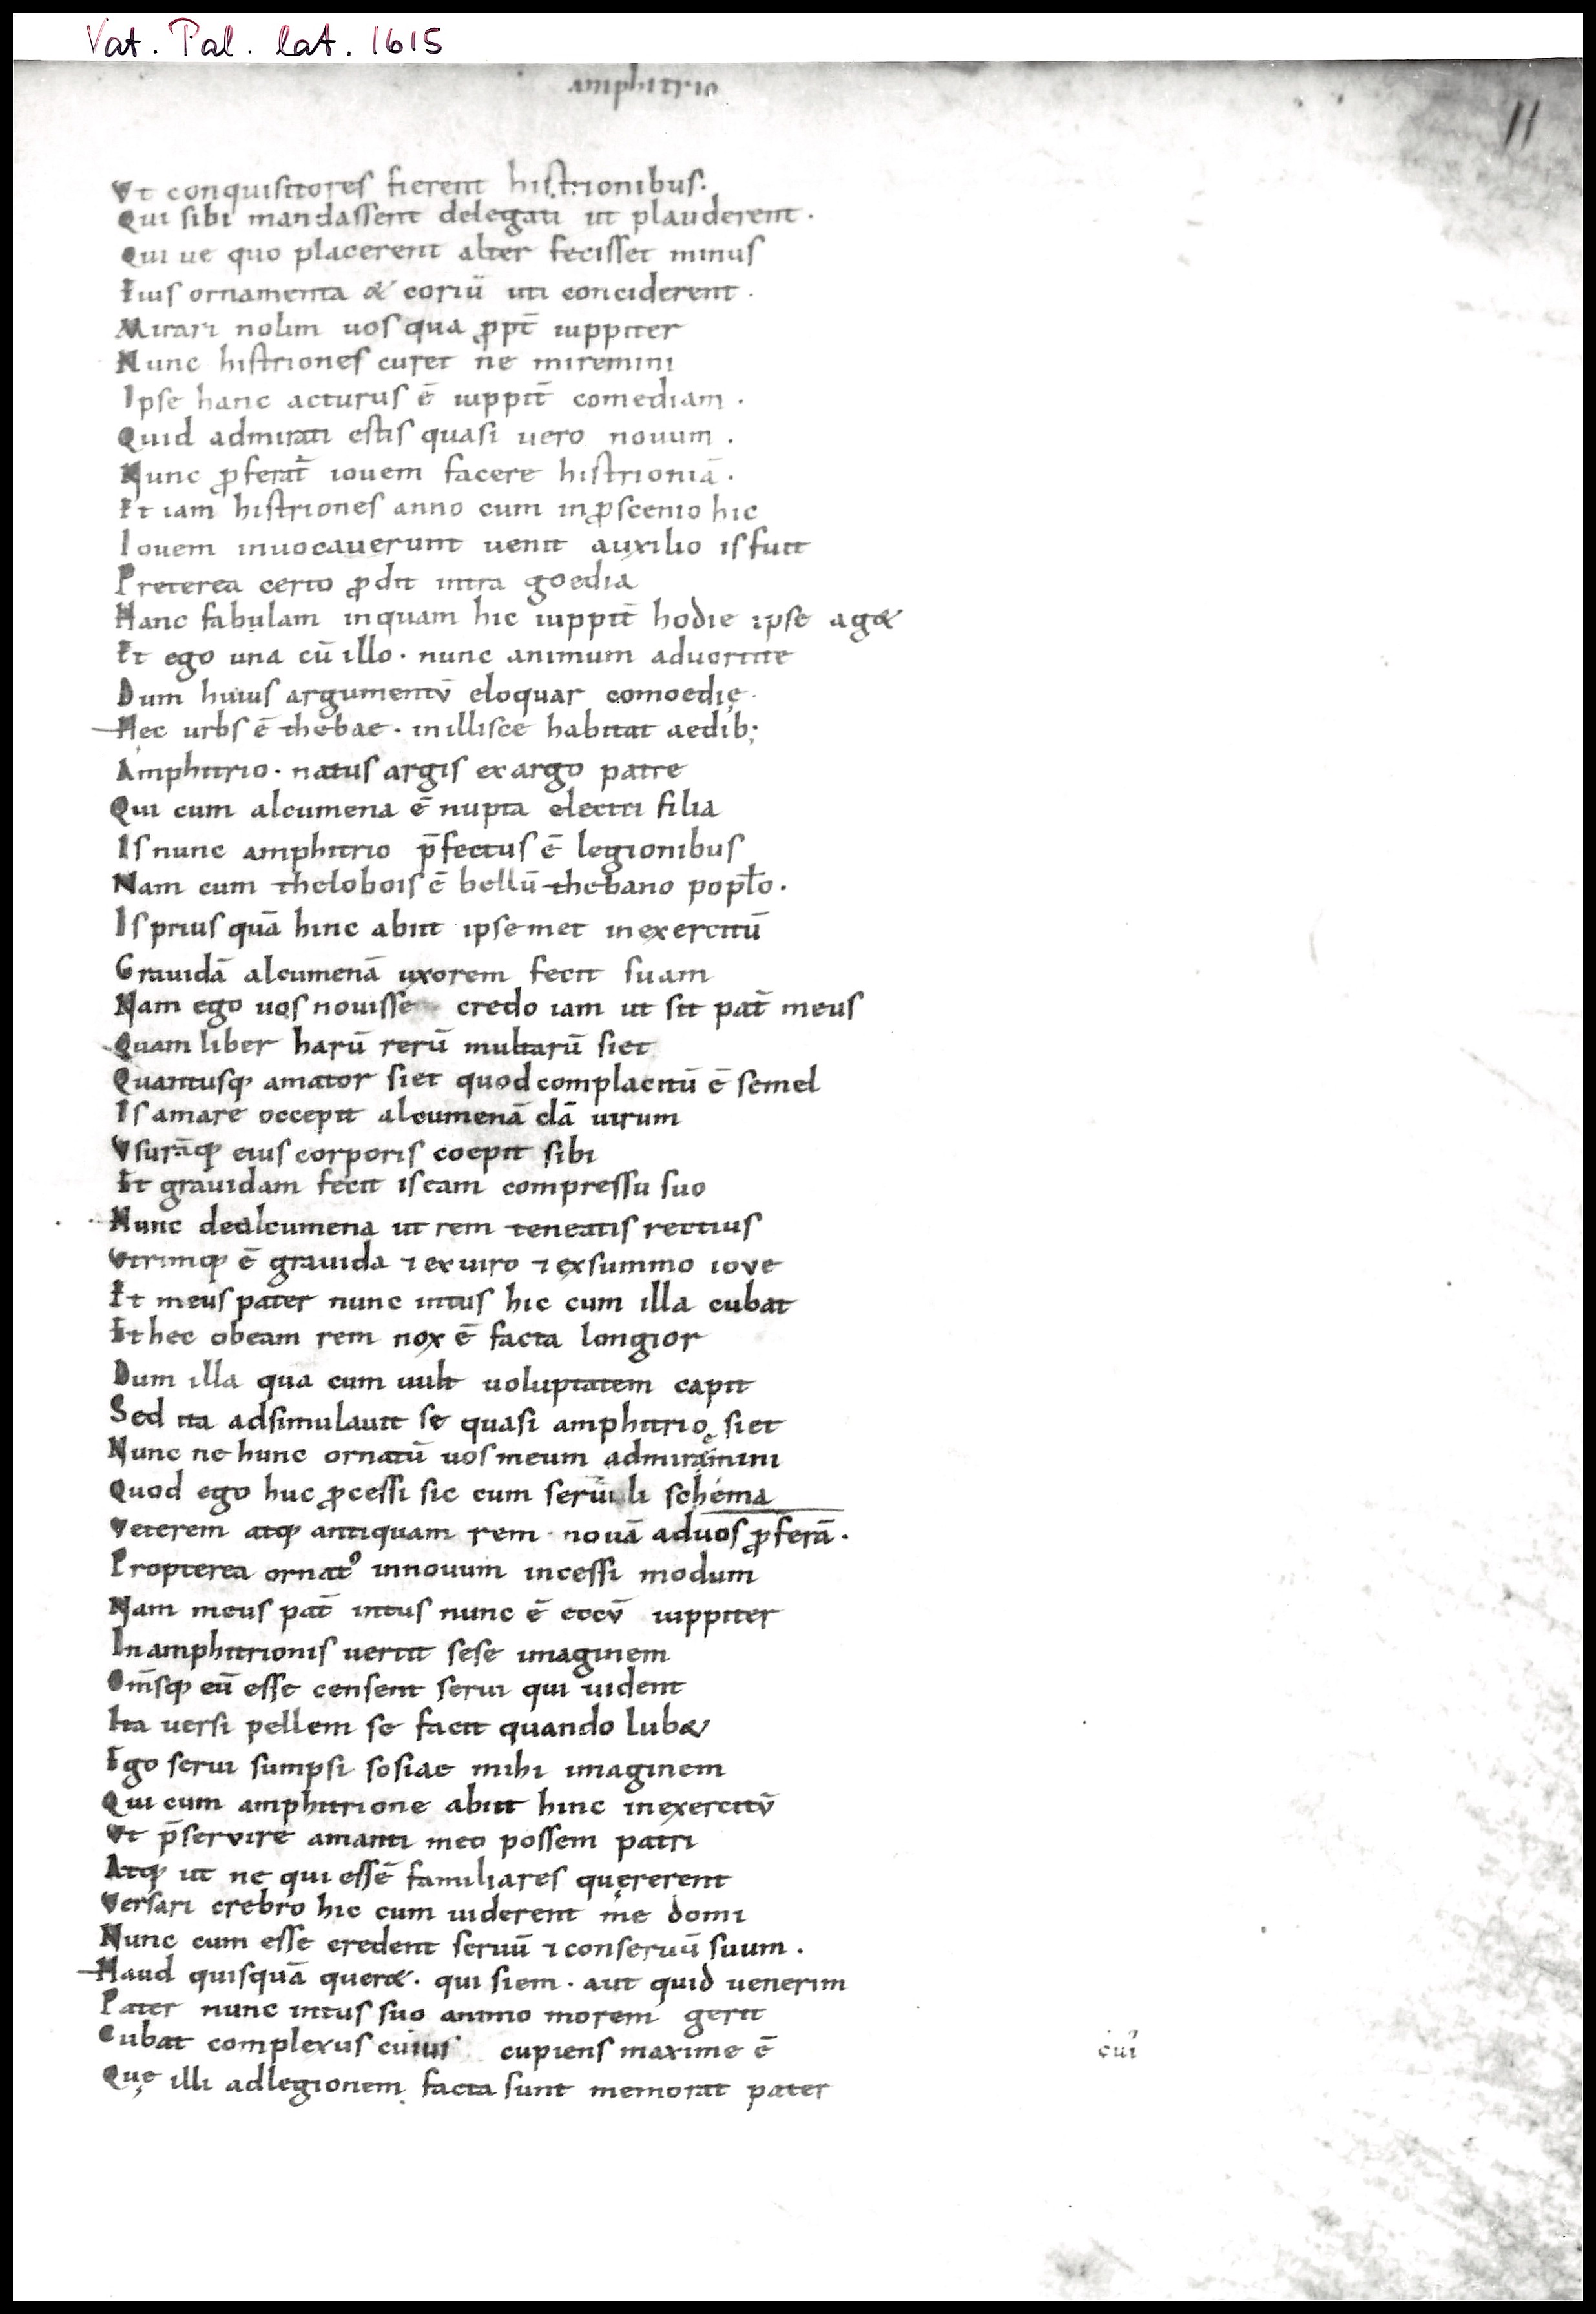 Vat. Pal. lat. 1615
amphitrio
11
Vt conquisitores fierent histrionibus.
Qui sibi mandassent delegati ut plauderent.
Qui ue quo placerent alter fecisset minus
Eius ornamenta & coriū uti conciderent.
Mirari nolim uos qua ꝓpt̄ iuppiter
Nunc histriones curet ne miremini
Ipse hanc acturus ē iuppit̄ comediam.
Quid admirati estis quasi uero nouum.
Nunc ꝓferat̄ iouem facere histrioniā.
Et iam histriones anno cum inꝓscenio hic
Iouem inuocauerunt uenit auxilio isfuit
Preterea certo ꝓdit intra goedia
Hanc fabulam inquam hic iuppit̄ hodie ipse ag&
Et ego una cū illo. nunc animum aduortite
Dum huius argumentū eloquar comoedię.
Hec urbs ē thebae. inillisce habitat aedib;
Amphitrio. natus argis exargo patre
Qui cum alcumena ē nupta electri filia
Is nunc amphitrio p̄fectus ē legionibus
Nam cum thelobois ē bellū thebano popl̄o.
Is prius quā hinc abiit ipsemet inexercitū
Grauidā alcumenā uxorem fecit suam
Nam ego uos nouisse credo iam ut sit pat̄ meus
Quam liber harū rerū multarū siet
Quantusq; amator siet quod complacitū ē semel
Is amare occepit alcumenā clā uirum
Vsurāq; eius corporis coepit sibi
Et grauidam fecit iseam compressu suo
Nunc dealcumena ut rem teneatis rectius
Vtrimq; ē grauida ⁊ exuiro ⁊ exsummo iove
Et meus pater nunc intus hic cum illa cubat
Et hec obeam rem nox ē facta longior
Dum illa qua cum uult uoluptatem capit
Sed ita adsimulauit se quasi amphitrio siet
Nunc ne hunc ornatū uos meum admiramini
Quod ego huc ꝓcessi sic cum seruili schema
Veterem atq; antiquam rem nouā aduos ꝓferā.
Propterea ornatꝰ innouum incessi modum
Nam meus pat̄ intus nunc ē eccū iuppiter
Inamphitrionis uertit sese imaginem
Om̄sq; eū esse censent serui qui uident
Ita uersi pellem se facit quando lub&
Ego serui sumpsi sosiae mihi imaginem
Qui cum amphitrione abiit hinc inexercitū
Vt p̄servire amanti meo possem patri
Atq; ut ne qui essē familiares quęrerent
Versari crebro hic cum uiderent me domi
Nunc cum esse credent seruū ⁊ conseruū suum.
Haud quisquā quer&. qui siem. aut quid uenerim
Pater nunc intus suo animo morem gerit
Cubat complexus cuius cupiens maxime ē
cui
Quę illi adlegionem facta sunt memorat pater